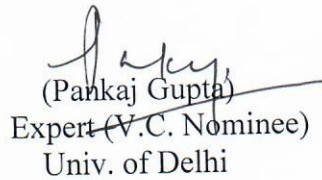 (Pankaj Gupta)
Expert (V.C. Nominee)
Univ. of Delhi